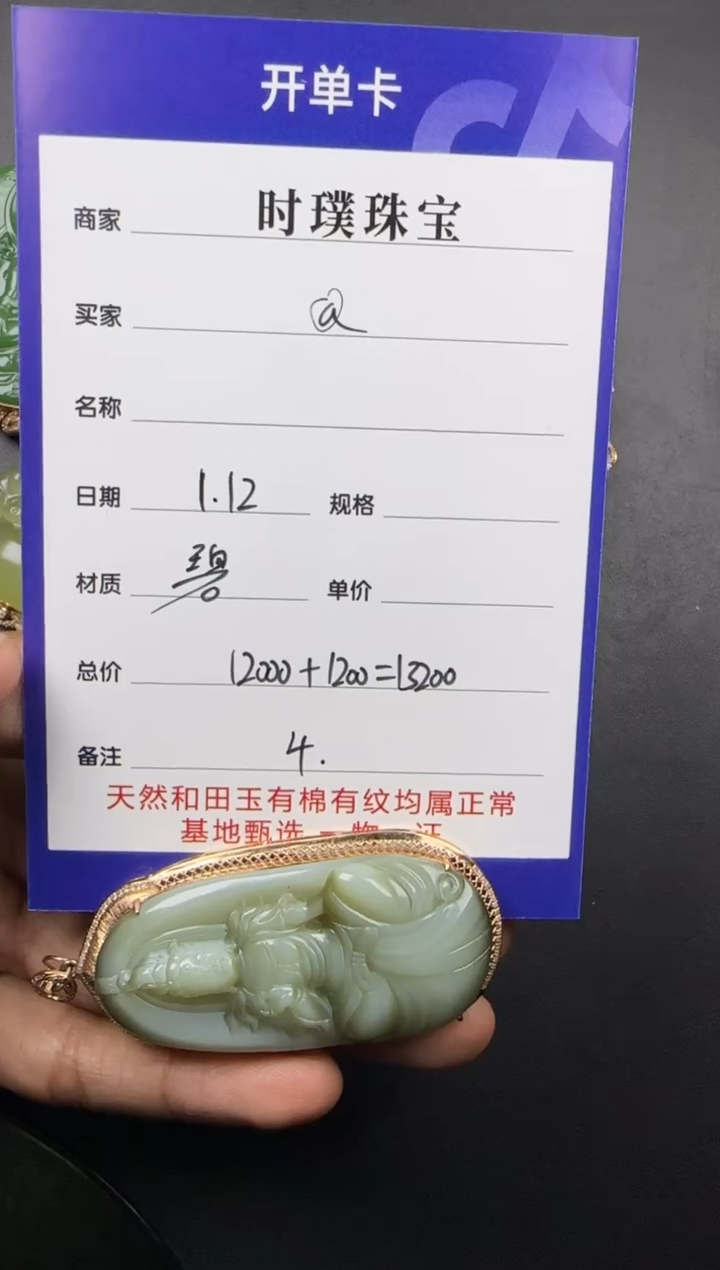 开单卡
商家 时璞珠宝
买家 @
名称
日期 1.12 规格
材质 碧 单价
总价 12000+1200=13200
备注 4.
天然和田玉有棉有纹均属正常
基地甄选 一物一证